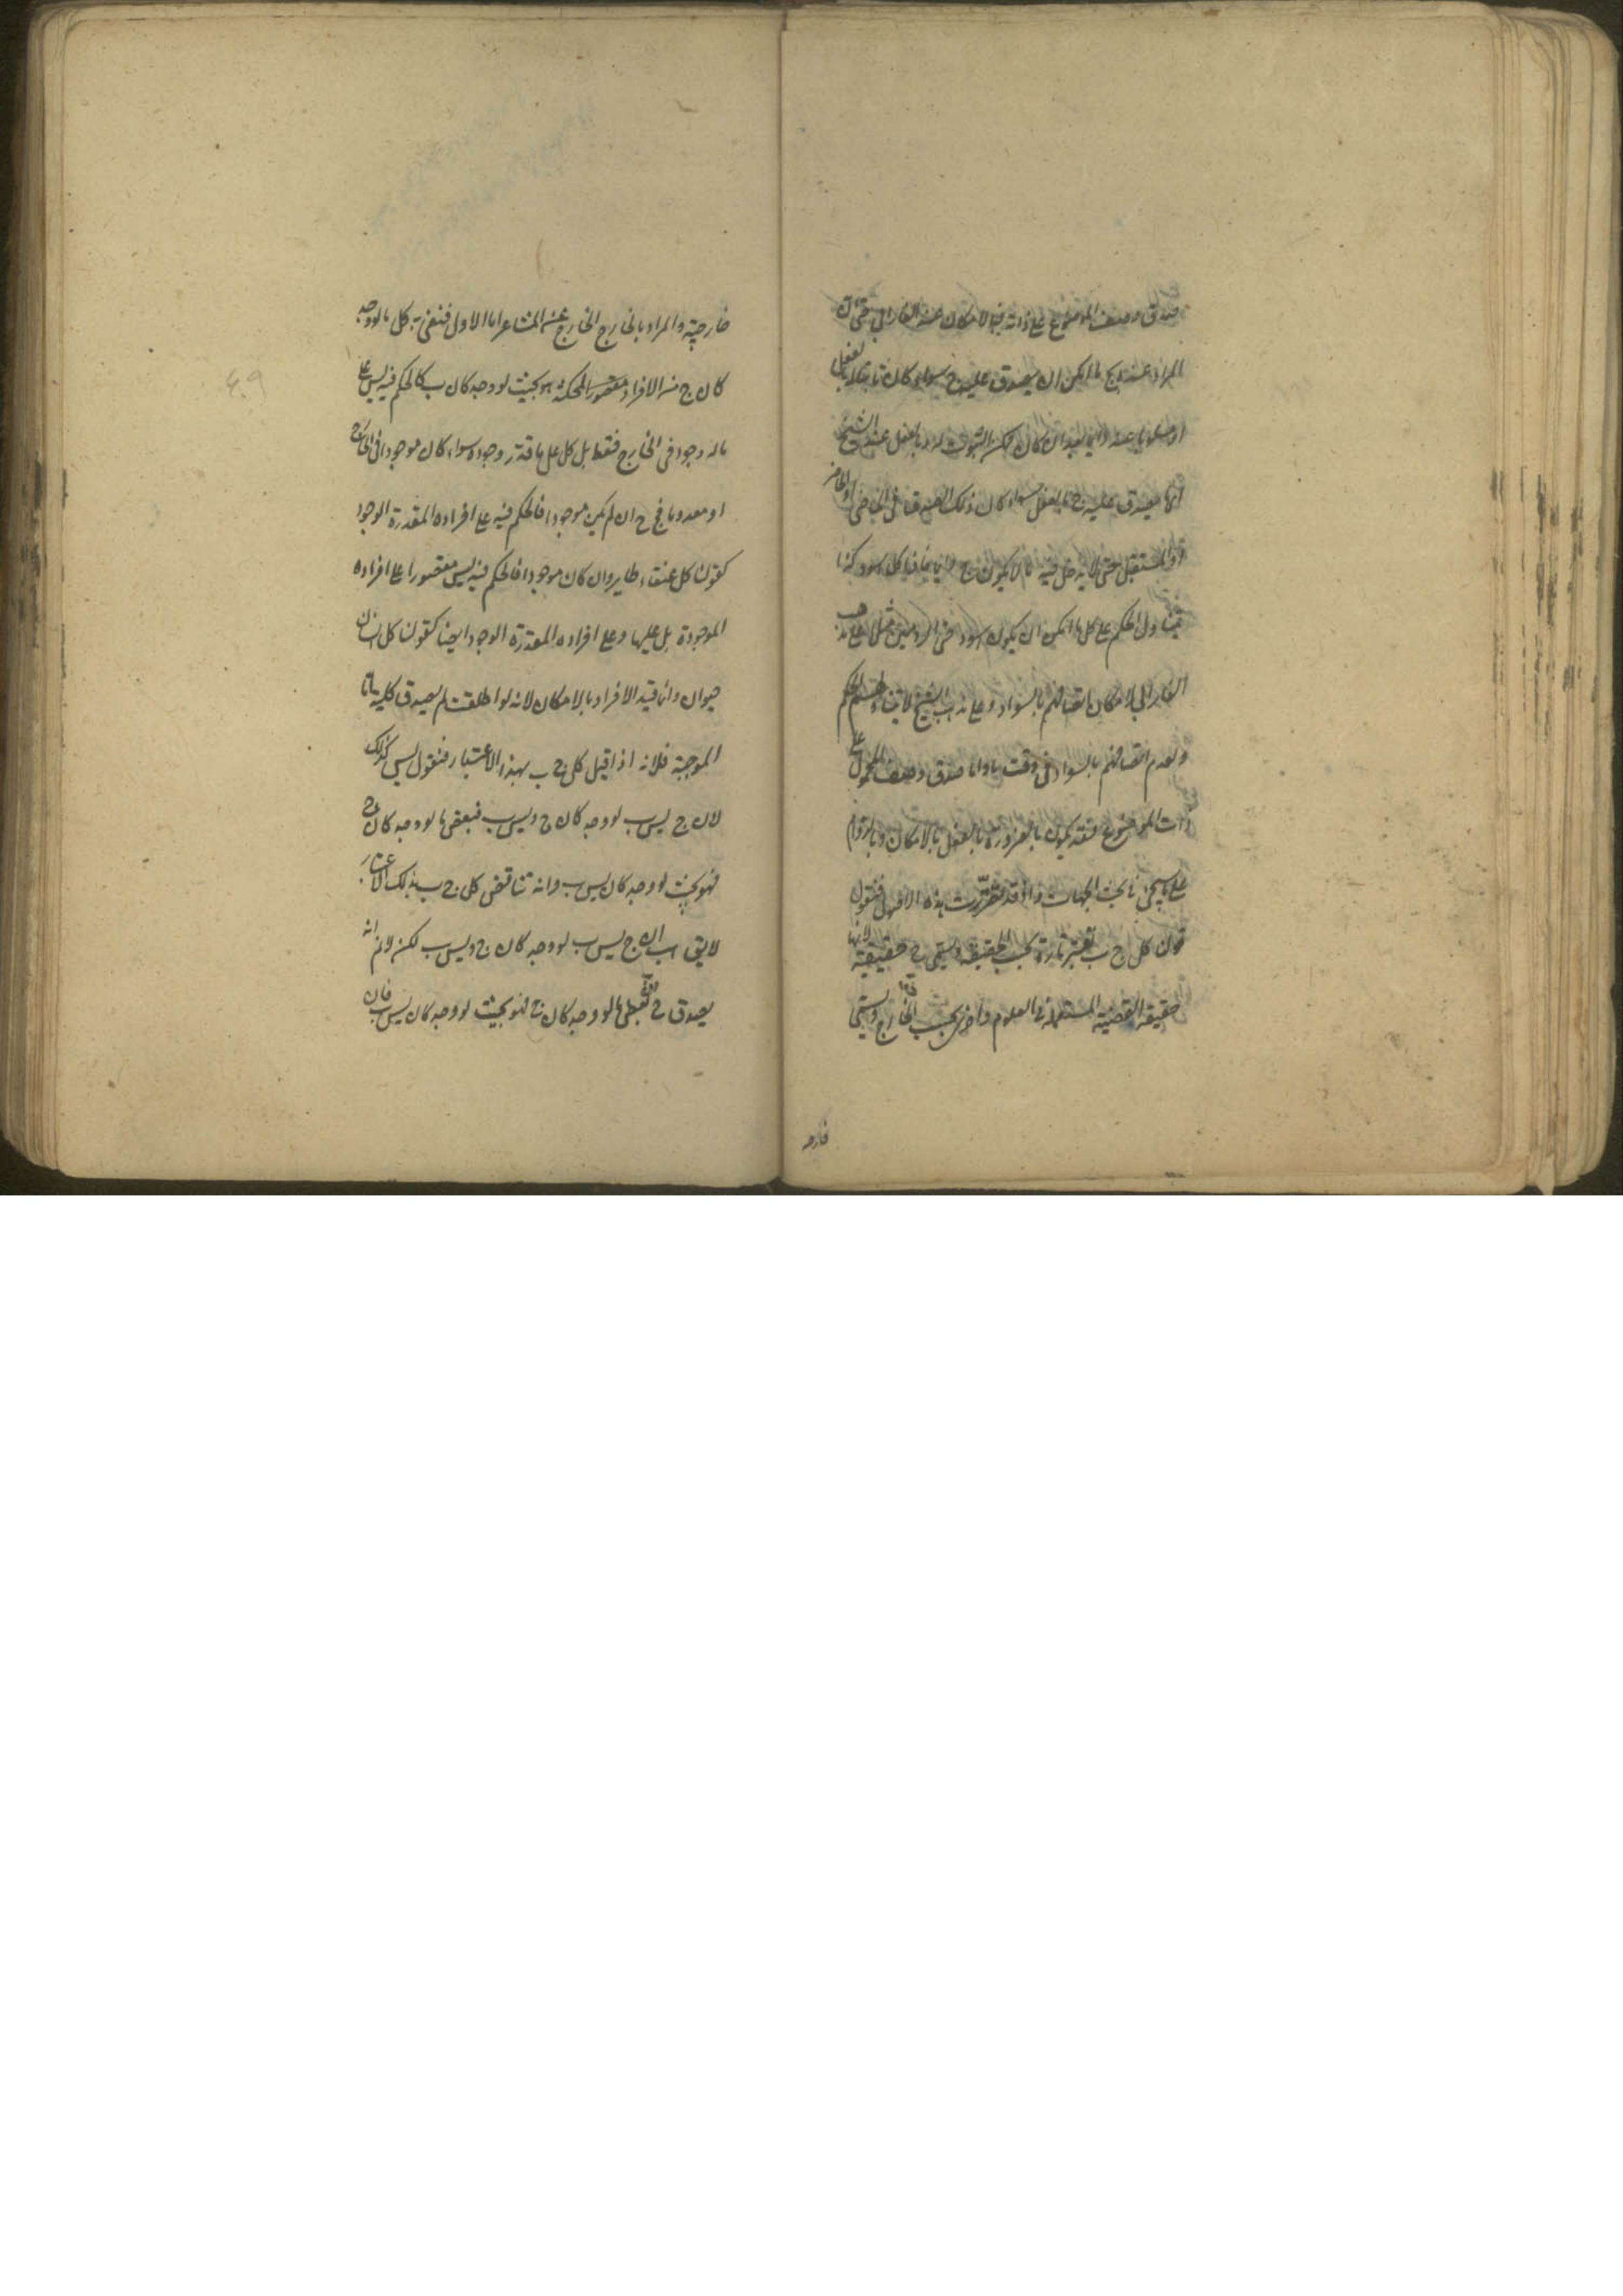 صدق وصف الموضوع على ذاته فبالامكان عند الفارابي حتى ان
المراد عنده بج ما امكن ان يصدق عليه ج سواء كان ثابتا له بالفعل
او مسلوبا عنه دائما بعد ان كان ممكن الثبوت له وبالفعل عند الشيخ
اي ما يصدق عليه ج بالفعل سواء كان ذلك الصدق في الماضي او الحاضر
او المستقبل حتى لا يدخل فيه ما لا يكون ج دائما فاذا قلنا كل اسود كذا
يتناول الحكم على كل ما امكن ان يكون اسود حتى الروميين مثلا على مذهب
الفارابي لامكان اتصافهم بالسواد وعلى مذهب الشيخ لا يتناولهم الحكم
ولعدم اتصافهم بالسواد في وقت ما واما صدق وصف المحمول على
ذات الموضوع فقد يكون بالضرورة بالفعل بالامكان وبالدوام
على ما سيجئ في بحث الجهات واذ قد تقررت هذه الاصول فنقول
قولنا كل ج ب يعتبر تارة بحسب الحقيقة ويسمى ح حقيقية كانها
حقيقة القضية المستعملة في العلوم واخرى بحسب الخارج ويسمى
خارجه
خارجية والمراد بالخارج الخارج عن المشاعر اما الاول فنعني به كل ما لو وجد
كان ج من الافراد الممكنة هو بحيث لو وجد كان ب فالحكم فيه ليس على
ما له وجود في الخارج فقط بل كل على ما قدر وجوده سواء كان موجودا في الخارج
او معدوما فج ح ان لم يكن موجودا فالحكم فيه على افراده المقدرة الوجود
كقولنا كل عنقاء طاير وان كان موجودا فالحكم فيه ليس مقصورا على افراده
الموجودة بل عليها وعلى افراده المقدرة الوجود ايضا كقولنا كل انسان
حيوان وانما قيد الافراد بالامكان لانه لو اطلقت لم يصدق كلية اما
الموجبة فلانه اذا قيل كل ج ب بهذا الاعتبار فنقول ليس كذلك
لان ج ليس ب لو وجد كان ج وليس ب فبعض ما لو وجد كان ج
فهو بحيث لو وجد كان ليس ب وانه يناقض كل ج ب بذلك الاعتبار
لا يق هب ان ج ليس ب لو وجد كان ج وليس ب لكن لا نم انه
يصدق ح بعض ما لو وجد كان ج فهو بحيث لو وجد كان ليس ب فان